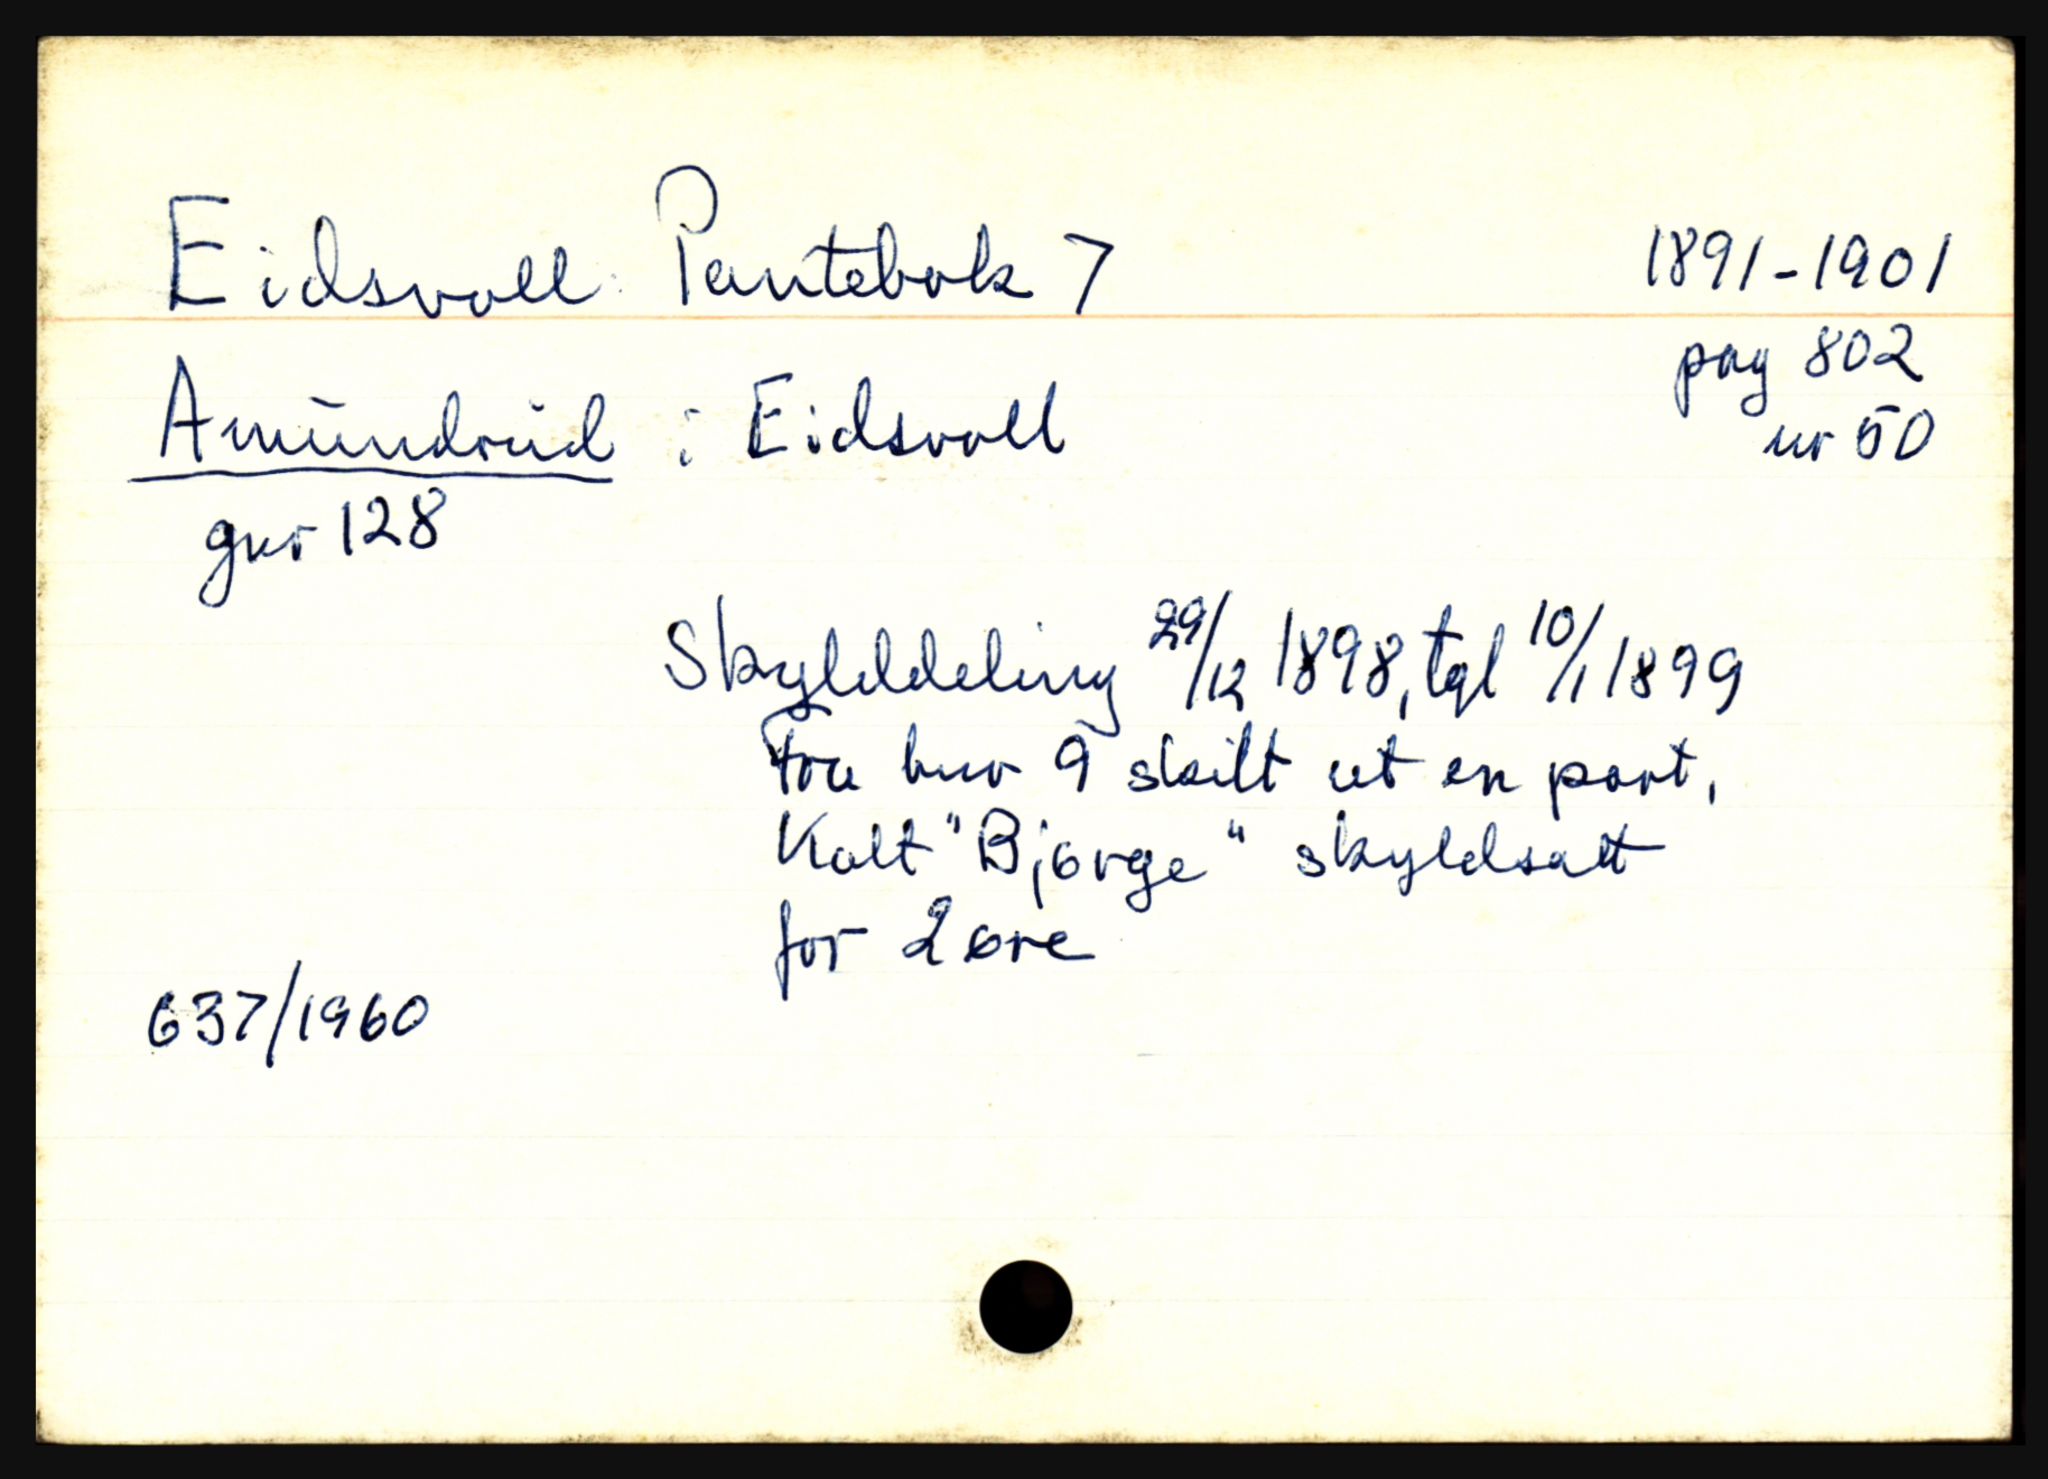 Eidsvoll Pantebok 7 1891-1901
pag 802
Amundrud i Eidsvoll nr 50
gnr 128
Skylddeling 29/12 1898, tgl 10/1 1899
Fra bnr 9 skilt ut en part,
Kalt "Bjørge" skyldsatt
for 2 øre
637/1960